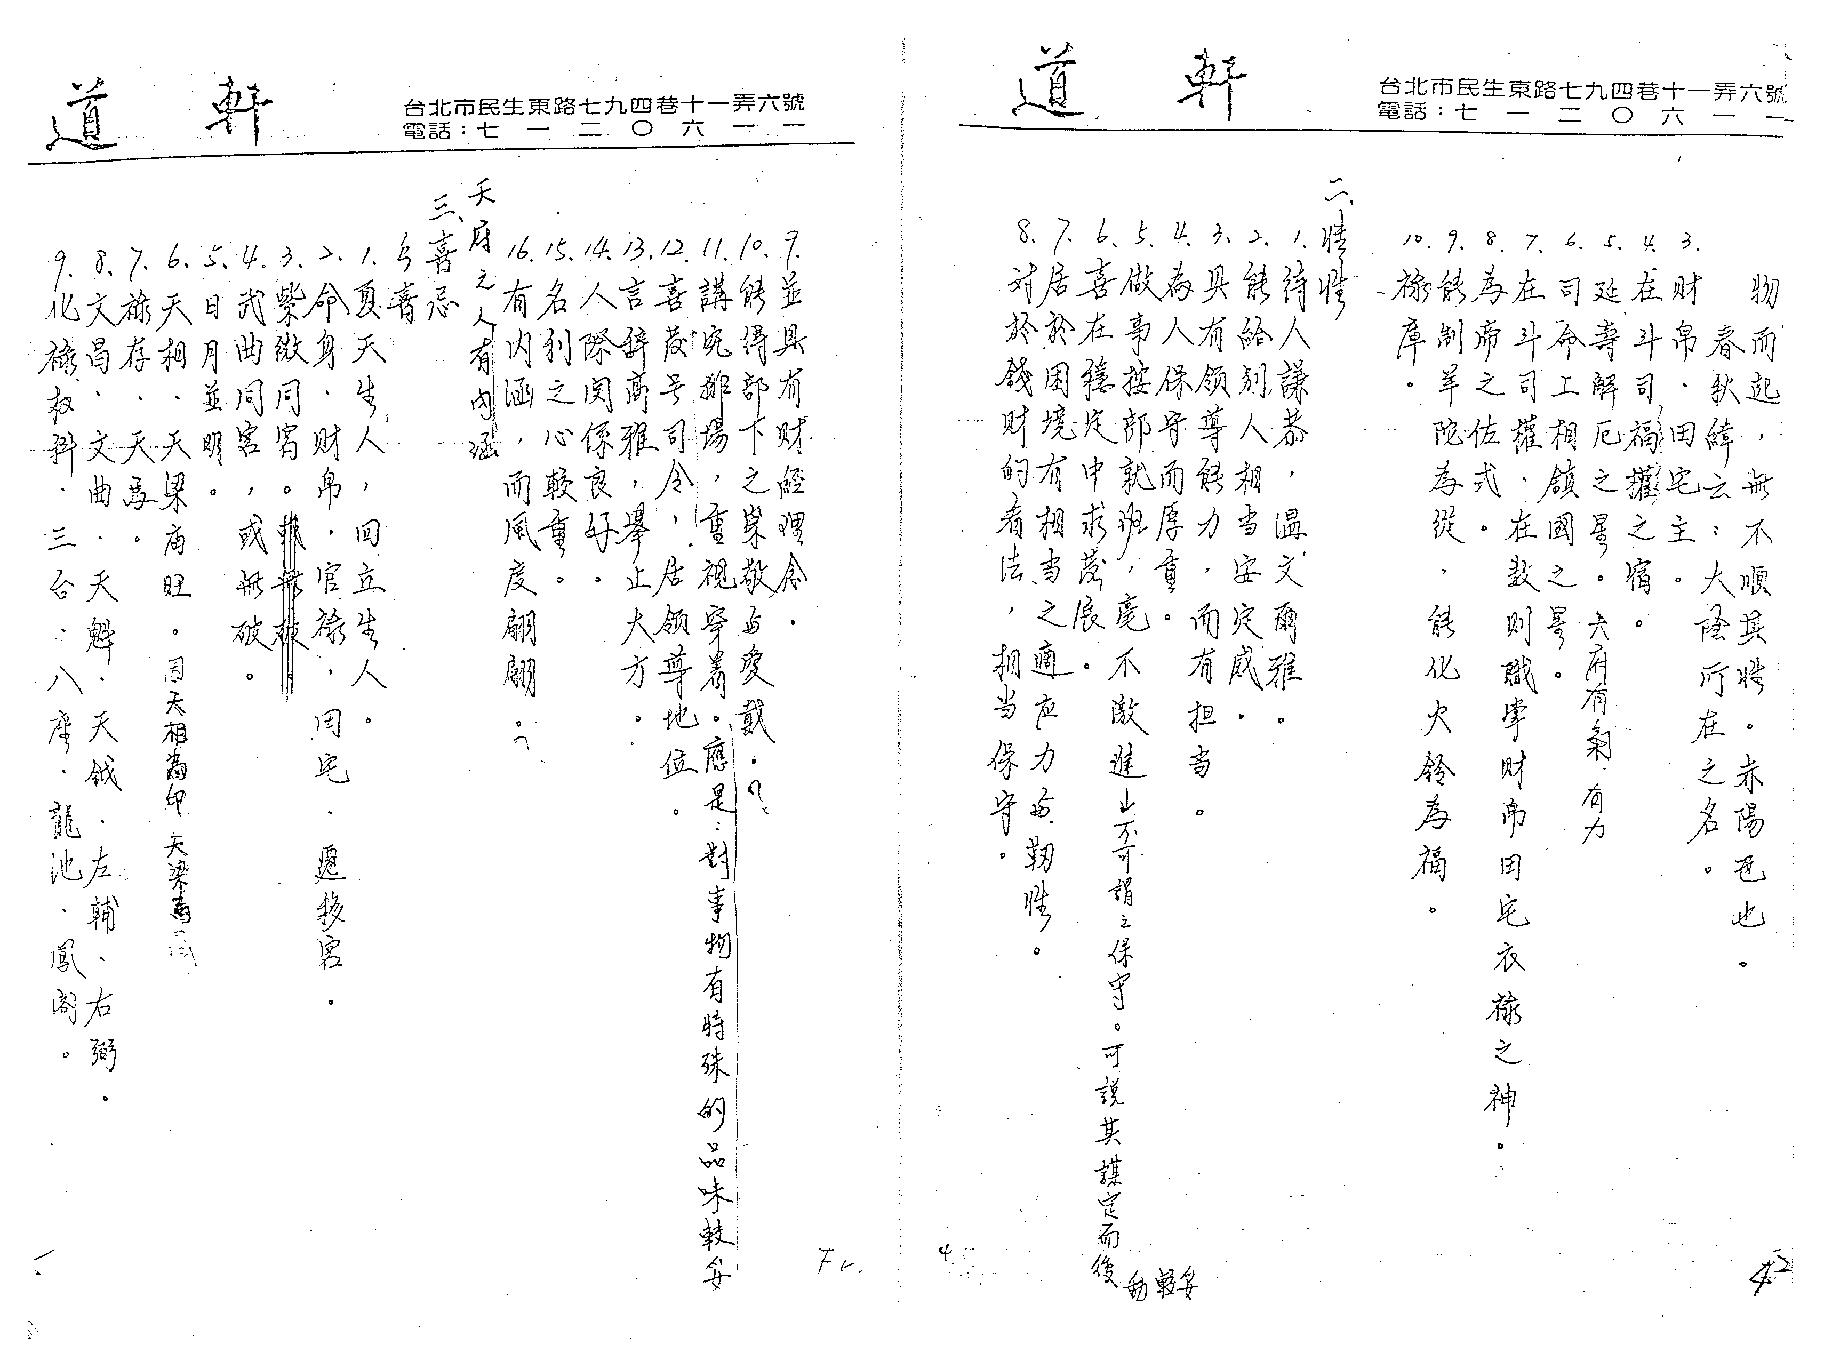 道軒
台北市民生東路七九四巷十一弄六號
電話：七一二〇六一一
物而起，無不順其性。赤陽氏也。
春秋緯云：大陰所在之名。
3. 財帛．田宅主。
4. 在斗司福權之宿。
5. 延壽解厄之星。天府有氣．有力
6. 司命上相鎮國之星。
7. 在斗司權．在數則職掌財帛田宅衣祿之神。
8. 為帝之佐弍。
9. 能制羊陀為從．能化火鈴為福。
10. 祿庫。
二、性性
1. 待人謙恭，溫文爾雅。
2. 能給別人相当安定感。
3. 具有領導能力，而有担当。
4. 為人保守而厚重。
5. 做事按部就班，毫不激進 止不可謂之保守。可說其謀定而後動較妥
6. 喜在穩定中求發展。
7. 居於困境有相当之適应力与韌性。
8. 对於錢財的看法，相当保守。
42
道軒
台北市民生東路七九四巷十一弄六號
電話：七一二〇六一一
9. 並具有財經理念．
10. 能得部下之崇敬与愛戴．
11. 講究排場，重視穿著。應是：對事物有特殊的品味較妥
12. 喜發号司令，居领導地位。
13. 言辞高雅，舉止大方。
14. 人際関係良好．
15. 名利之心較重。
16. 有內涵，而風度翩翩。
天府之人有內涵
三、喜忌
喜
1. 夏天生人，回立生人。
2. 命身．財帛．官祿．田宅．遷移宮。
3. 紫微同宮。
4. 武曲同宮，或無破。
5. 日月並明。
6. 天相．天梁庙旺。因天相為印 天梁為
7. 祿存．天馬。
8. 文昌．文曲．天魁．天鉞．左輔．右弼．
9. 化祿权科．三台．八座．龍池．鳳閣。